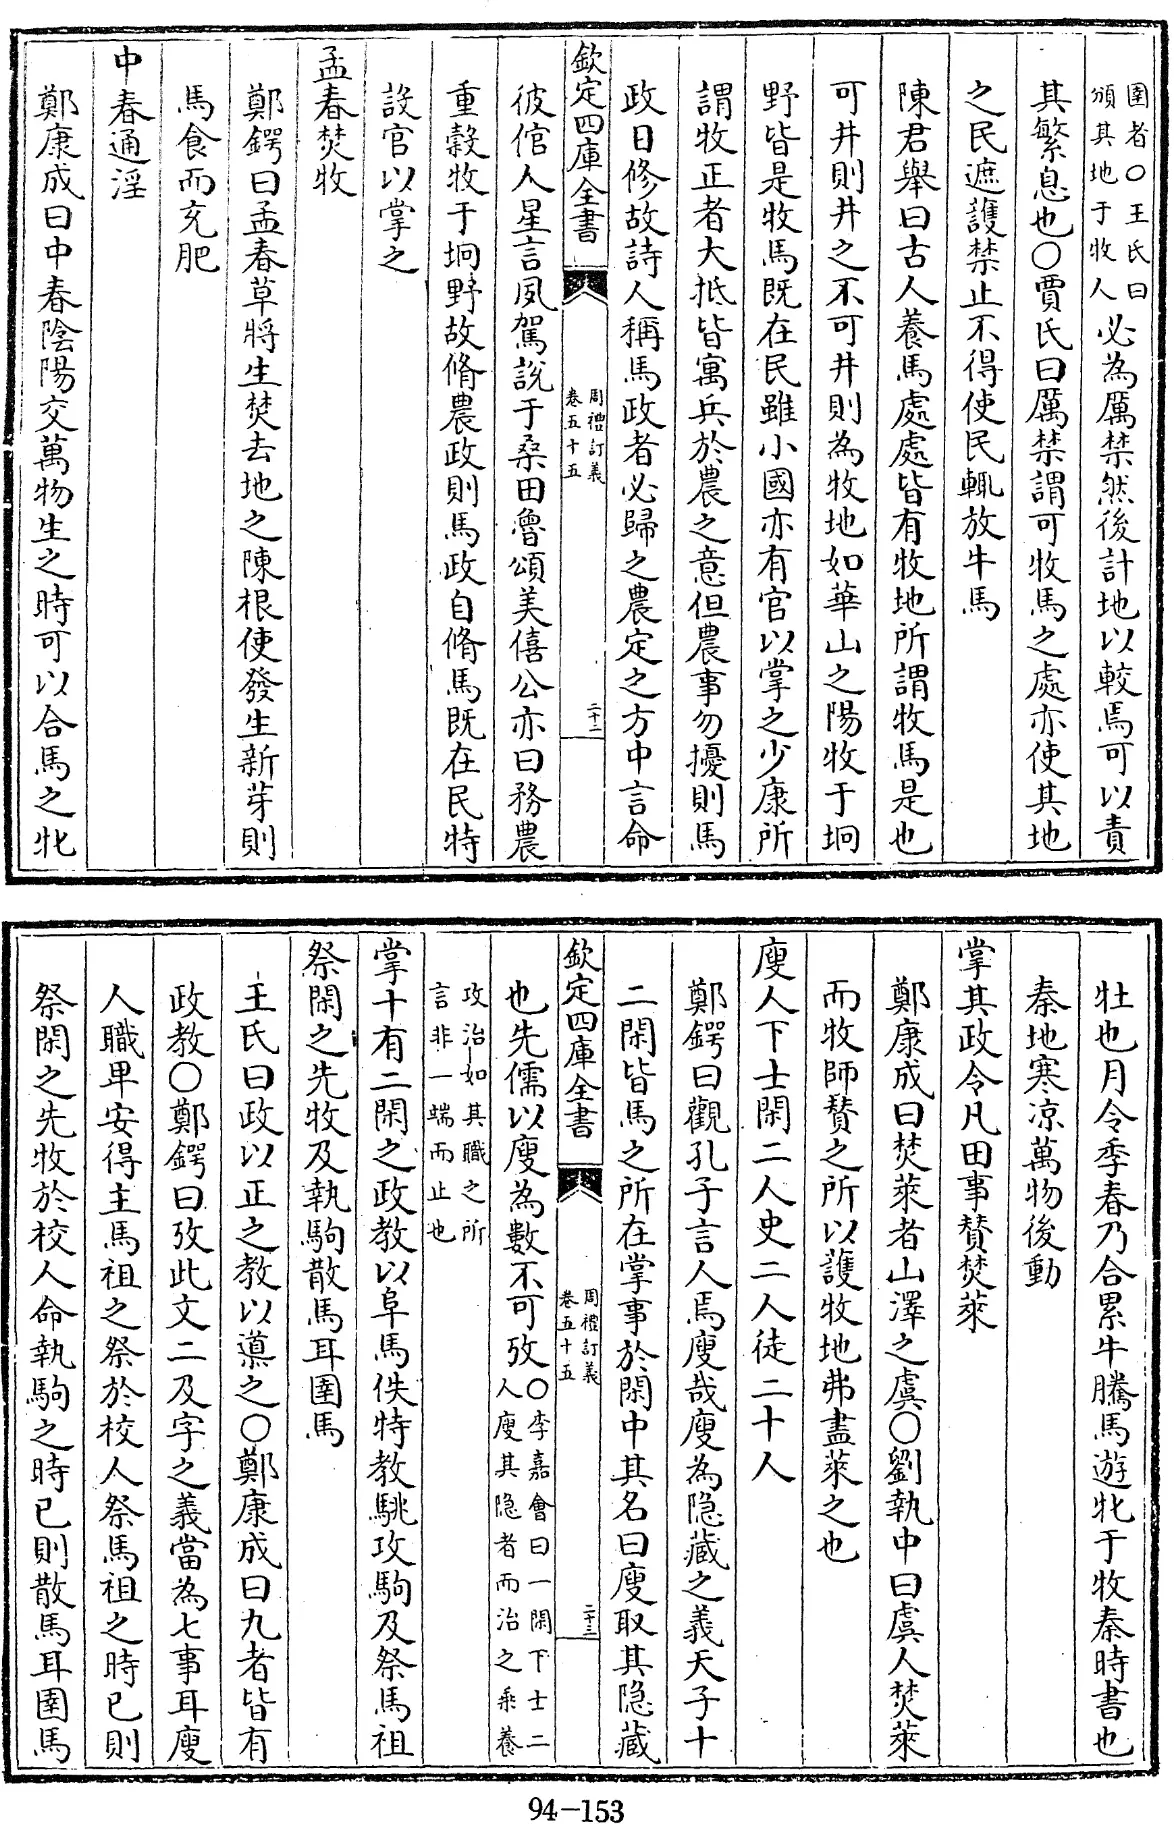 圉者○王氏曰
頒其地于牧人必為厲禁然後計地以較焉可以責
其繁息也○賈氏曰厲禁謂可牧馬之處亦使其地
之民遮護禁止不得使民輒放牛馬
陳君舉曰古人養馬處處皆有牧地所謂牧馬是也
可井則井之不可井則為牧地如華山之陽牧于坰
野皆是牧馬既在民雖小國亦有官以掌之少康所
謂牧正者大抵皆寓兵於農之意但農事勿擾則馬
政日修故詩人稱馬政者必歸之農定之方中言命
欽定四庫全書
周禮訂義
卷五十五
二十二
彼倌人星言夙駕說于桑田魯頌美僖公亦曰務農
重穀牧于坰野故脩農政則馬政自脩馬既在民特
設官以掌之
孟春焚牧
鄭鍔曰孟春草將生焚去地之陳根使發生新芽則
馬食而充肥
中春通淫
鄭康成曰中春陰陽交萬物生之時可以合馬之牝
牡也月令季春乃合累牛騰馬遊牝于牧秦時書也
秦地寒涼萬物後動
掌其政令凡田事賛焚萊
鄭康成曰焚萊者山澤之虞○劉執中曰虞人焚萊
而牧師賛之所以護牧地弗盡萊之也
廋人下士閑二人史二人徒二十人
鄭鍔曰觀孔子言人焉廋哉廋為隐藏之義天子十
二閑皆馬之所在掌事於閑中其名曰廋取其隐藏
欽定四庫全書
周禮訂義
卷五十五
二十三
也先儒以廋為數不可攷○李嘉會曰一閑下士二
人廋其隐者而治之乘養
攻治如其職之所
言非一端而止也
掌十有二閑之政教以阜馬佚特教駣攻駒及祭馬祖
祭閑之先牧及執駒散馬耳圉馬
王氏曰政以正之教以導之○鄭康成曰九者皆有
政教○鄭鍔曰攷此文二及字之義當為七事耳廋
人職卑安得主馬祖之祭於校人祭馬祖之時已則
祭閑之先牧於校人命執駒之時已則散馬耳圉馬
94-153